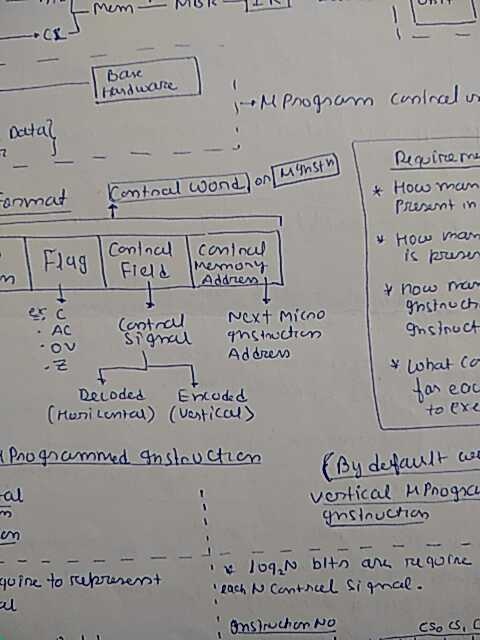 Mem — MBR
CX
Base
Hardware
Data}
→ μProgram control
Format
Control word or μInstn
Flag
Control
Field
Control
Memory
Address
ex: C
· AC
· OV
· Z
Control
Signal
Next Micro
Instruction
Address
Decoded
(Horizontal)
Encoded
(Vertical)
Requireme
* How man
Present in
* How man
is presen
* how man
Instructi
Instruct
* What co
for eac
to exe
μProgrammed Instruction
(By default we
vertical μProgra
Instruction
quire to represent
al
* log₂N bits are require
each N Control Signal.
Instruction No
CS₀ CS₁ C